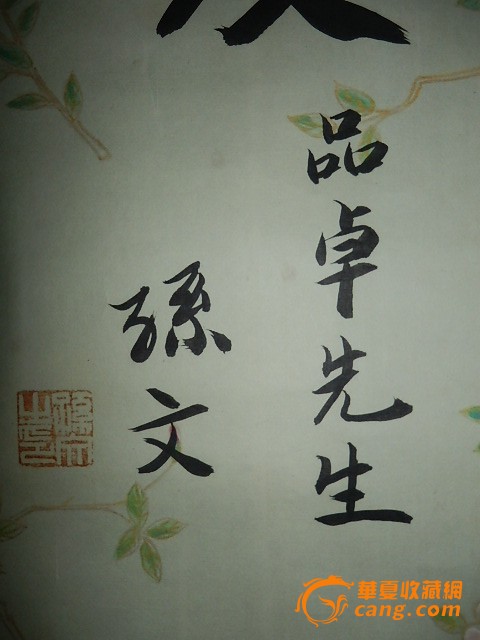 品卓先生
孫文
孫文之印
華夏收藏網
cang.com